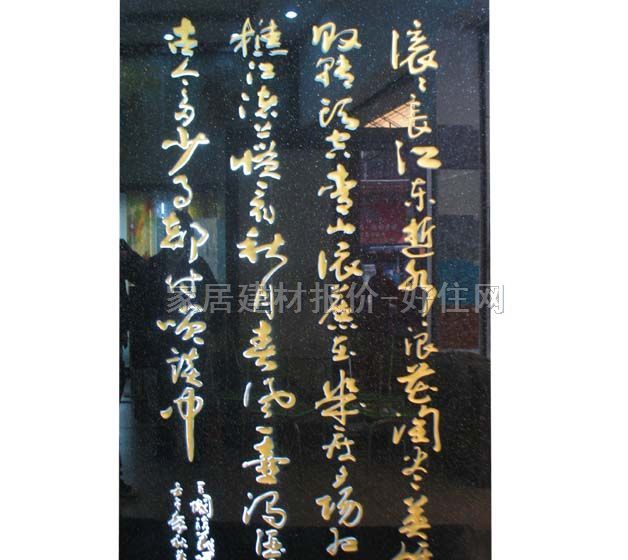 滚々长江东逝水浪花淘尽英
败转头空青山依舊在几度夕阳红
樵江渚上惯看秋月春风一壶浊酒
古今多少事都付笑谈中
家居建材报价-好住网